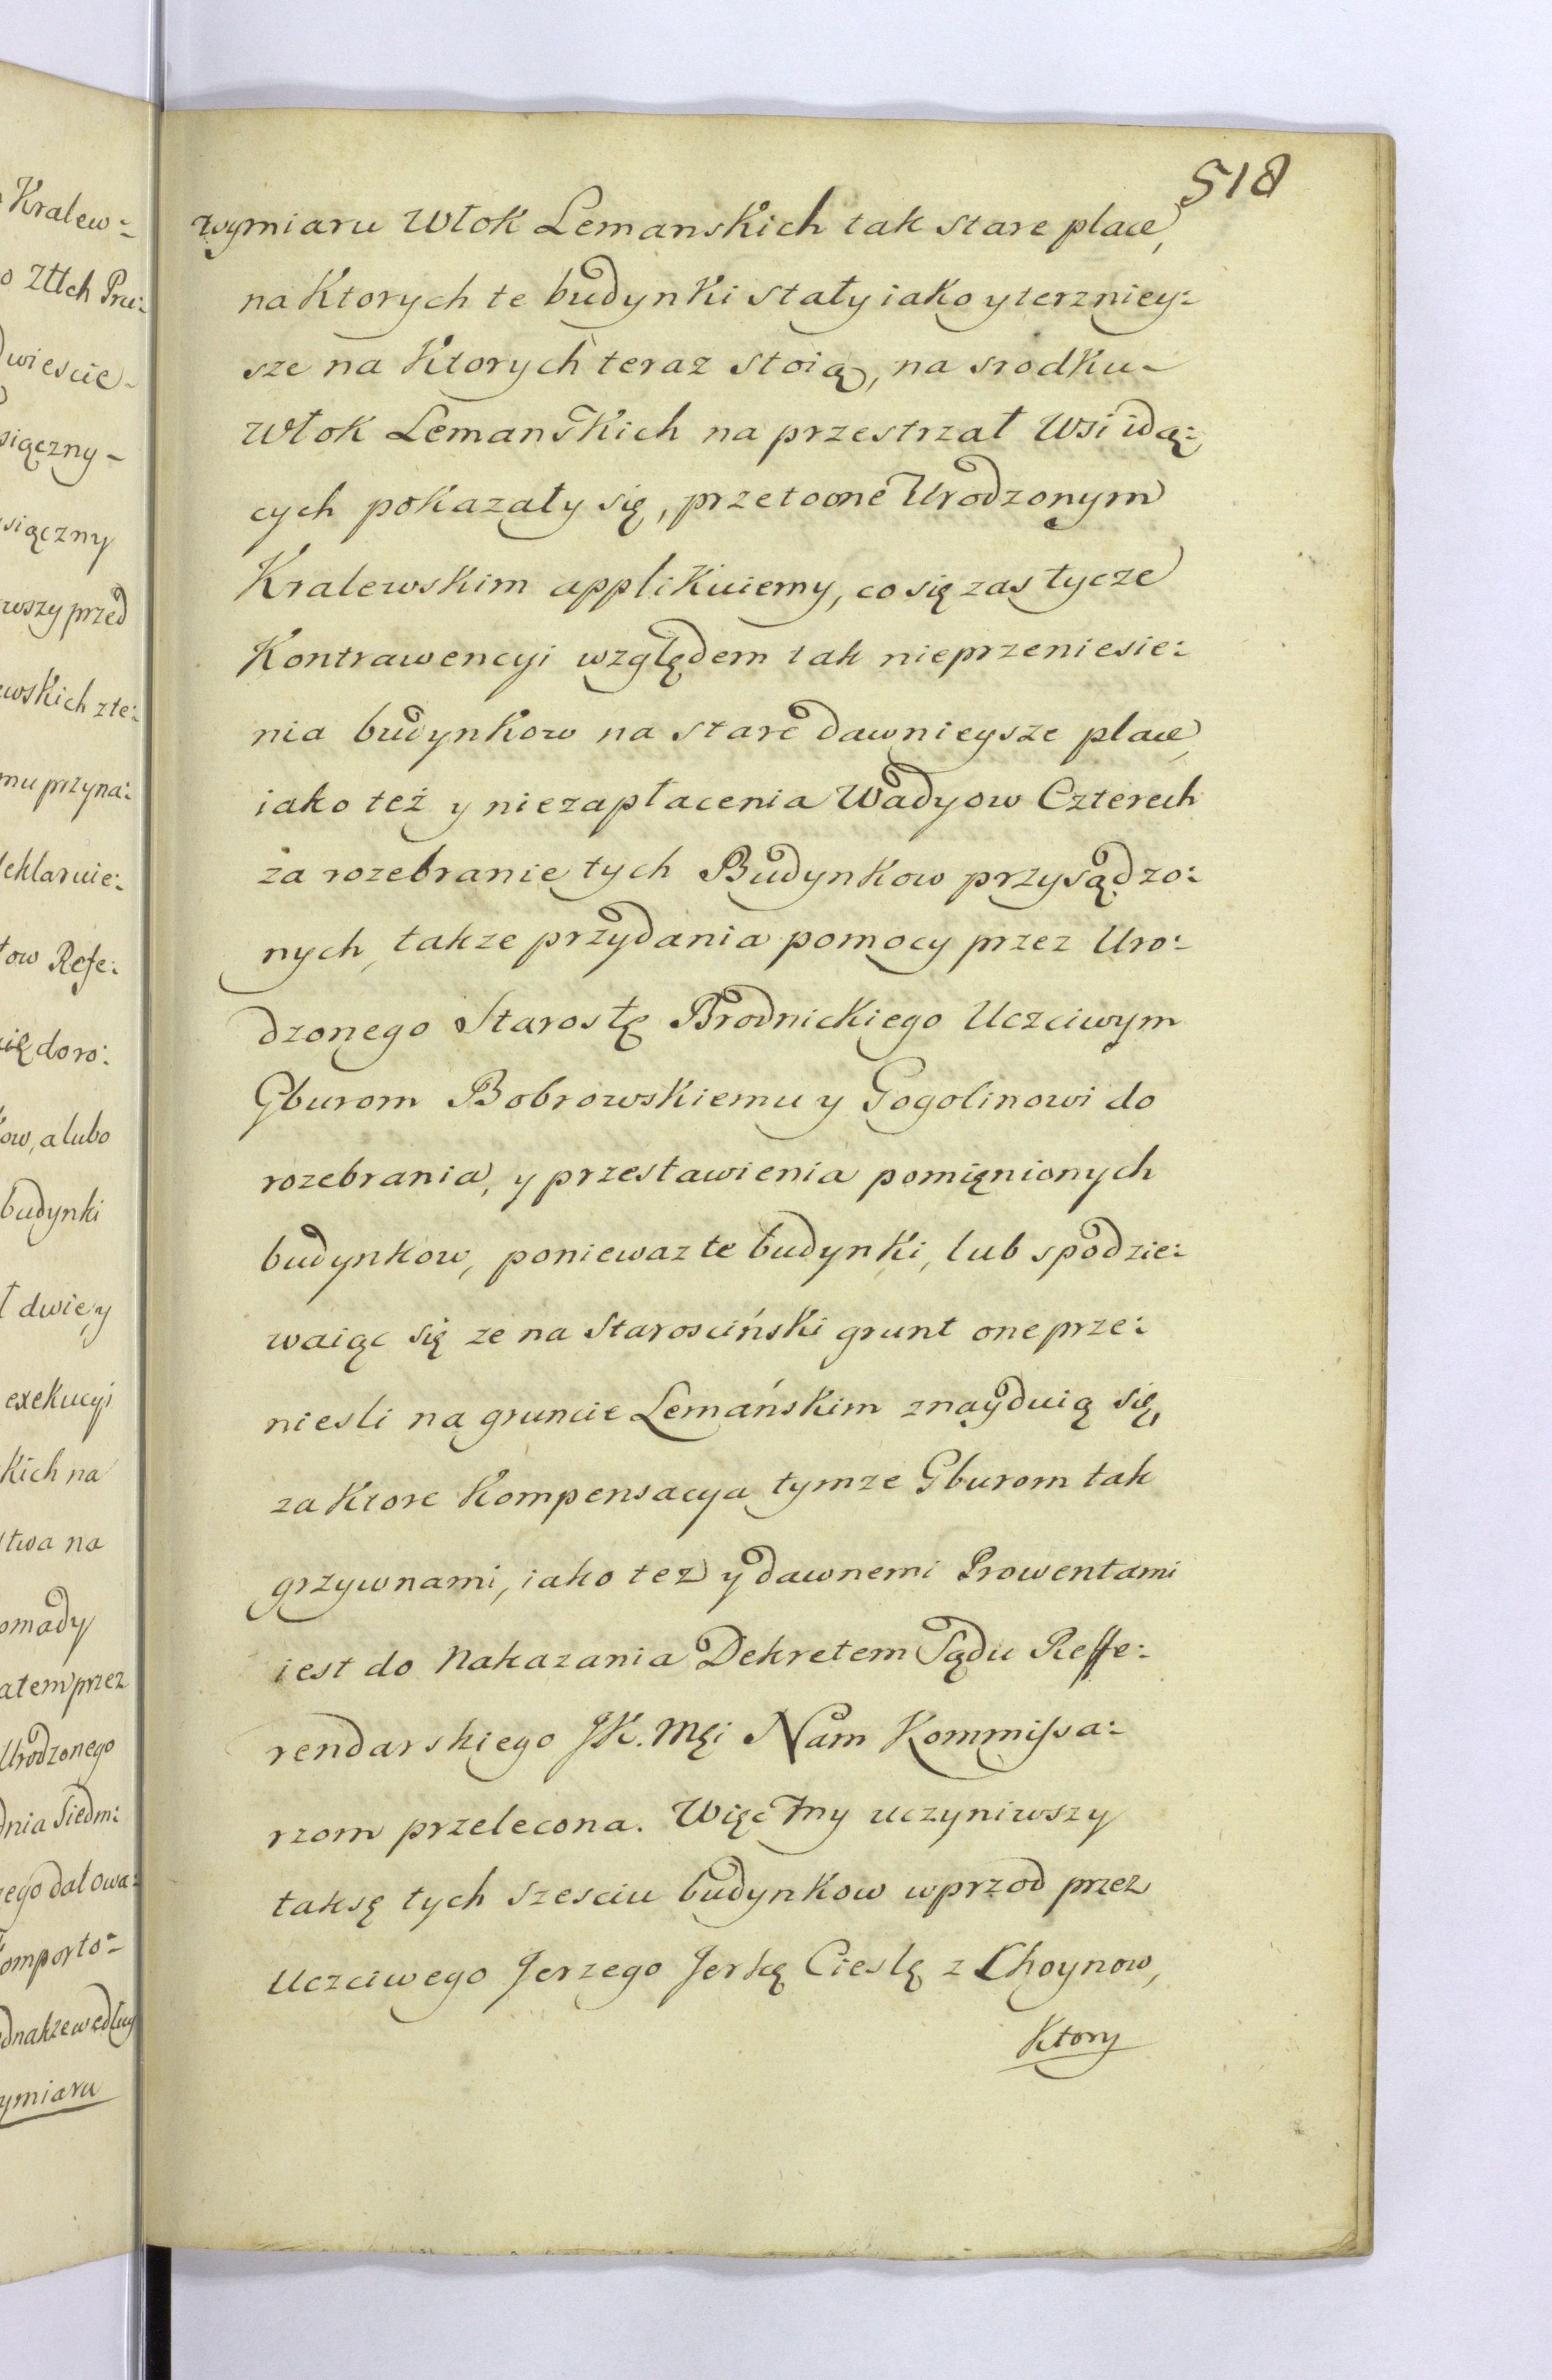 518
wymiaru Włok Lemanskich tak stare place,
na Ktorych te budynki stały iako y terzniey:
sze na Ktorych teraz stoią, na srodku-
Włok Lemanskich na przestrzał Wsi idą:
cych pokazały się, przeto one Urodzonym
Kralewskim applikuiemy, co się zas tycze
Kontrawencyi względem tak nieprzeniesie:
nia budynkow na stare dawnieysze place,
iako też y niezapłacenia Wadyow Czterech
za rozebranie tych Budynkow przysądzo:
nych, takze przydania pomocy przez Uro:
dzonego Starostę Brodnickiego Uczciwym
Gburom Bobrowskiemu y Gogolinowi do
rozebrania, y przestawienia pomięnionych
budynkow, poniewaz te budynki, lub spodzie:
waiąc się ze na Starosciński grunt one prze:
niesli na gruncie Lemańskim znayduią się,
za Ktore Kompensacya tymze Gburom tak
grzywnami, iako tez y dawnemi Prowentami
iest do Nakazania Dekretem Sądu Reffe:
rendarskiego JK. Męi Nam Kommissa:
rzom przelecona. Więc my uczyniwszy
taksę tych szesciu budynkow wprzod przez
Uczciwego Jerzego Jerkę Cieslę z Choynow,
Ktory
Kralew:
o Ztłch Pru:
wiescie-
siączny
wszy przed
wskich zte:
mu przyna:
eklaruie:
tow Refe:
się doro:
ow, a lubo
budynki
ł dwie, y
exekucyi
kich na
stwa na
omady
atem przez
Urodzonego
dnia Siedm:
ego datowa:
omporto:
dnakze według
ymiaru